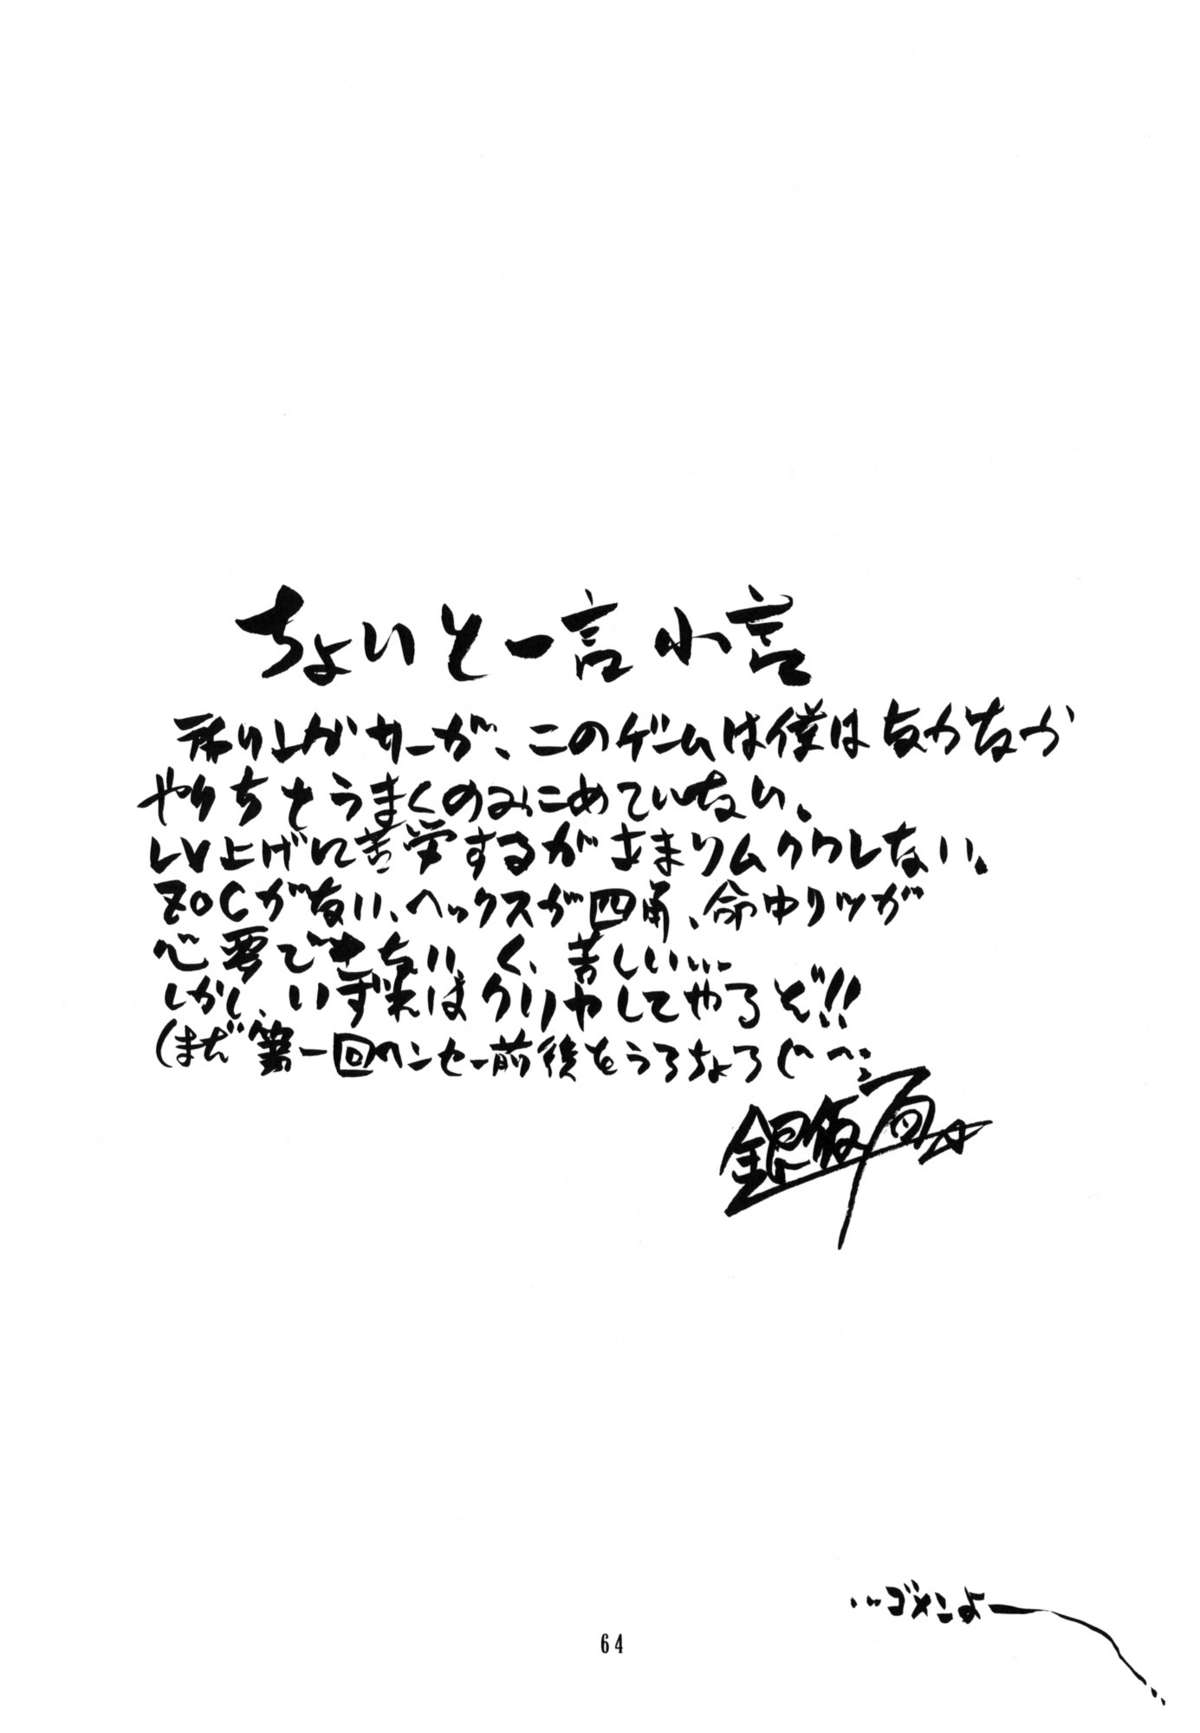 ちょいと一言小言
上がサーガ、このゲームは僕はなかなか
やりちとうまくのみこめていない。
LV上げに苦労するがあまりムクワレない。
ZOCがない、ヘックスが四角、命中リツが
しにくく、苦しい…
しかし、いずれはクリヤしてやるぞ!!
(まだ第一回のヘンセー前後をうろちょろ
銀仮面☆
…ゴメンよー
64